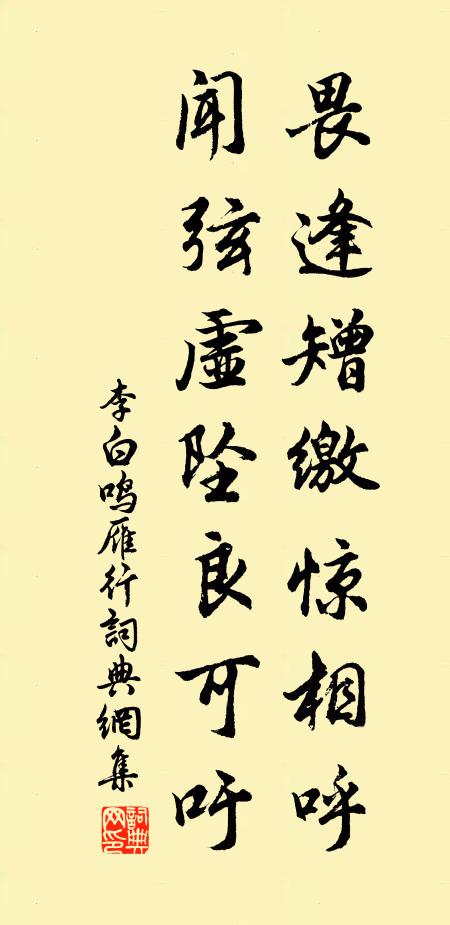 畏逢矰缴惊相呼
闻弦虚坠良可吁
李白鸣雁行詞典網集
詞典網印